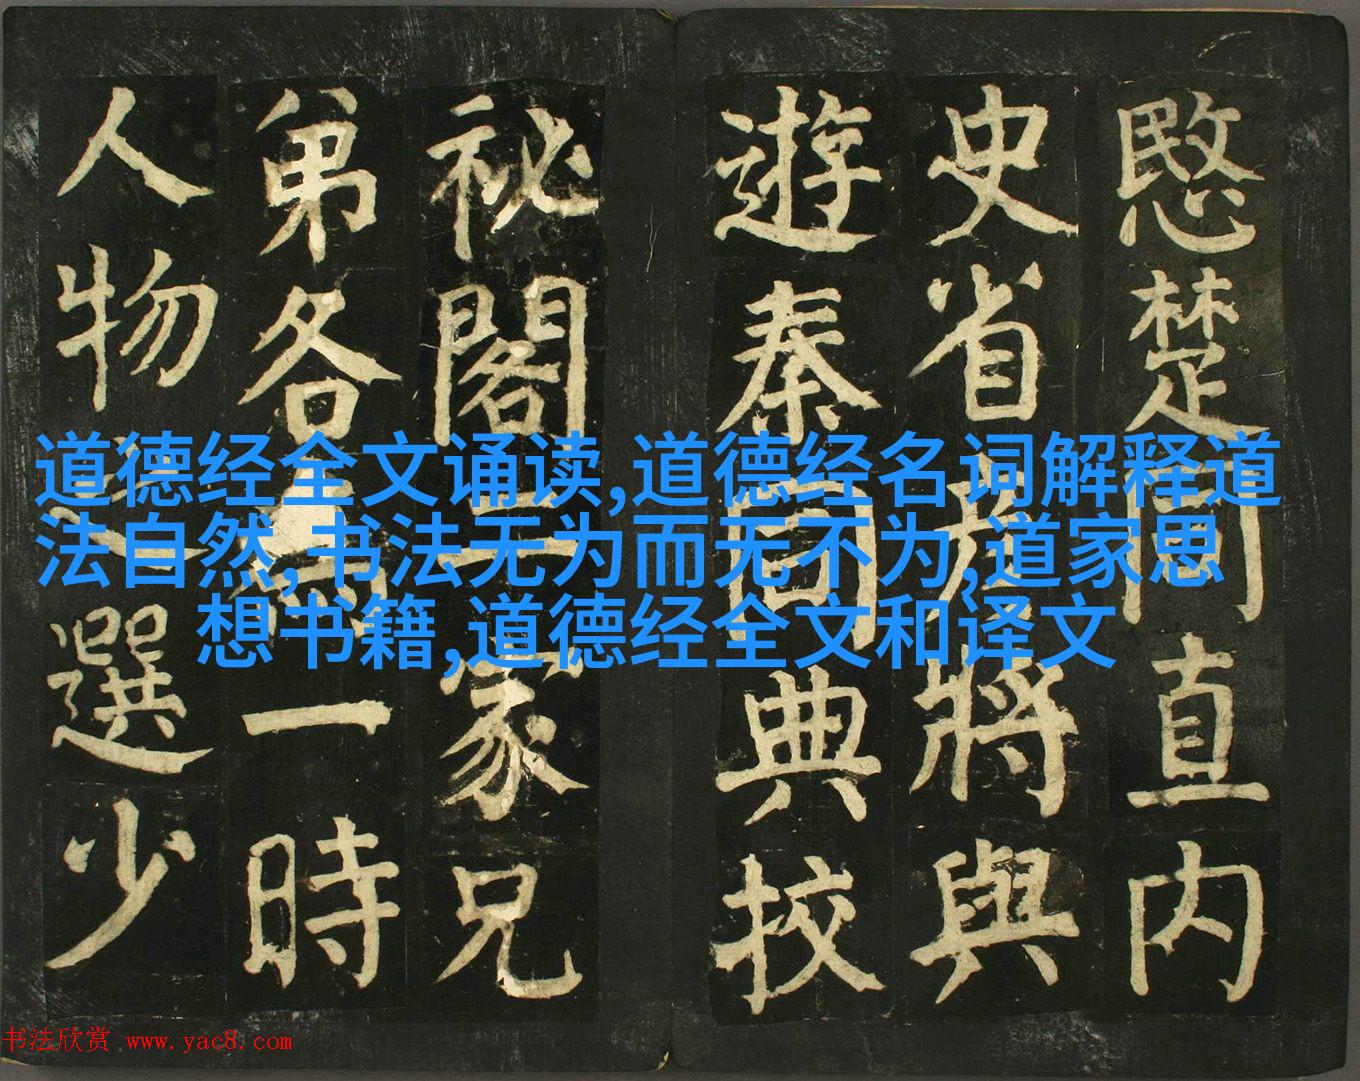 愍楚同直内
史省彦將與
遊秦同典校
祕閣二家兄
弟各為一時
人物之選少
道德经全文诵读,道德经名词解释道
法自然,书法无为而无不为,道家思
想书籍,道德经全文和译文
书法欣赏 www.yac8.com